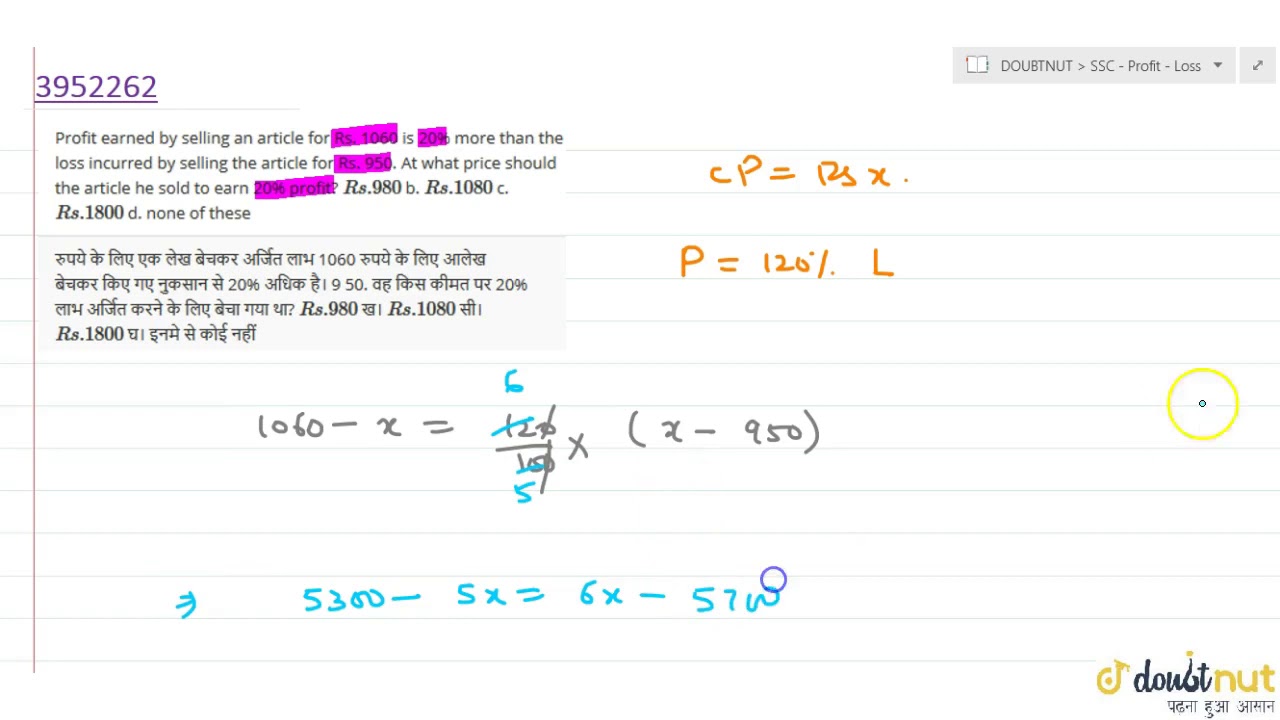 DOUBTNUT > SSC - Profit - Loss
3952262
Profit earned by selling an article for Rs. 1060 is 20% more than the
loss incurred by selling the article for Rs. 950. At what price should
the article he sold to earn 20% profit? Rs.980 b. Rs.1080 c.
Rs.1800 d. none of these
रुपये के लिए एक लेख बेचकर अर्जित लाभ 1060 रुपये के लिए आलेख
बेचकर किए गए नुकसान से 20% अधिक है। 9 50. वह किस कीमत पर 20%
लाभ अर्जित करने के लिए बेचा गया था? Rs.980 ख। Rs.1080 सी।
Rs.1800 घ। इनमे से कोई नहीं
CP = Rs x.
P = 120% L
6
1060 - x = 120/100 × (x - 950)
5
⇒ 5300 - 5x = 6x - 5700
doubtnut
पढ़ना हुआ आसान